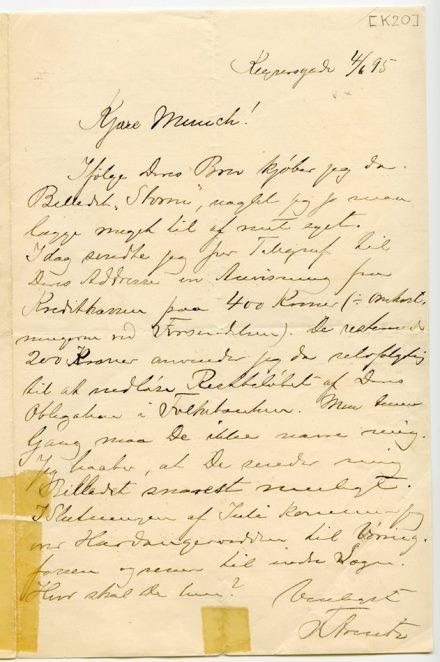 [K20]
Keysersgade 4/6 95
Kjære Munch!
Ifølge Deres Brev kjøber jeg da
Billedet „Storm", jeg jo maa
lægge meget til af mit eget.
Idag sendte jeg per Telegraf til
Deres Addresse en Anvisning fra
Kreditbanken paa 400 Kroner (÷ Omkost-
ningerne ved Forsendelsen). De resterende
200 Kroner anvender jeg da selvfølgelig
til at indløse Restbeløbet af Deres
Obligation i Folkebanken. Men denne
Gang maa De ikke narre mig.
Jeg haaber, at De sender mig
Billedet snarest muligt.
I Slutningen af Juli kommer jeg
over Hardangervidden til Vøring-
fossen og senere til indre Sogn.
Hvor skal De hen? Venligst